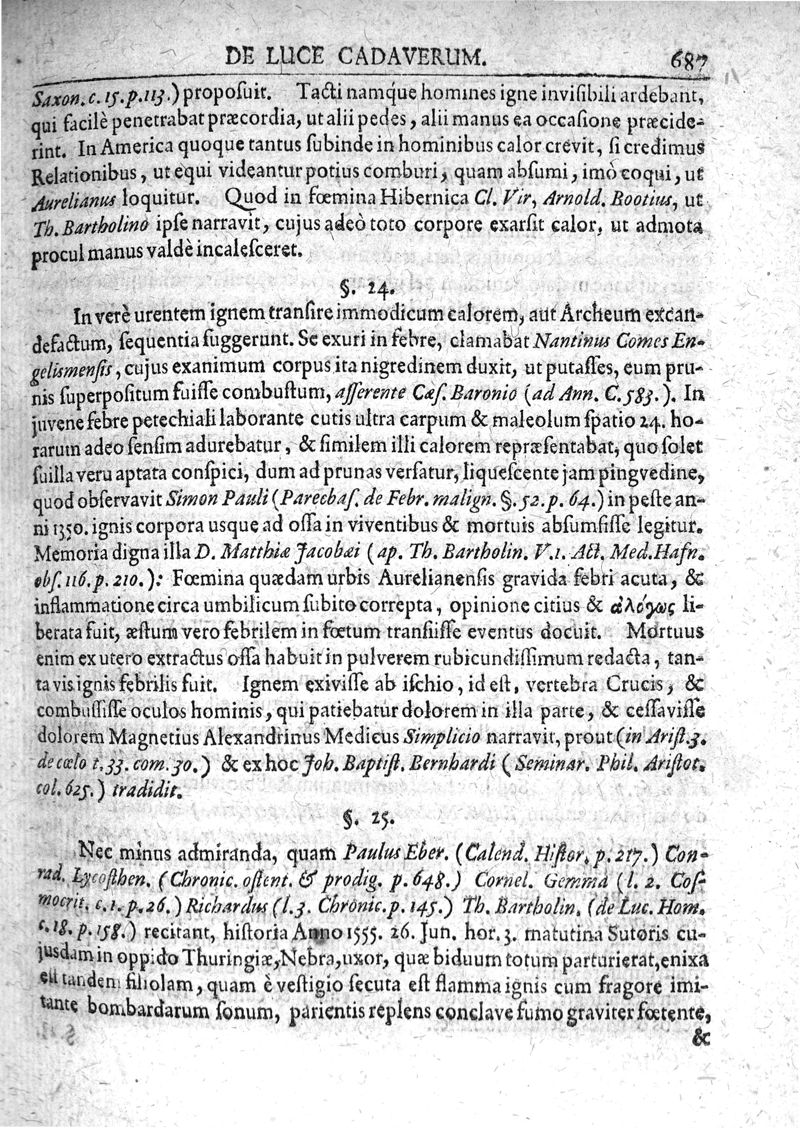 DE LUCE CADAVERUM. 687
Saxon. c. 15. p. 113.) proposuit. Tacti namque homines igne invisibili ardebant,
qui facilè penetrabat præcordia, ut alii pedes, alii manus ea occasione præcide-
rint. In America quoque tantus subinde in hominibus calor crevit, si credimus
Relationibus, ut equi videantur potius comburi, quam absumi, imò coqui, ut
Aurelianus loquitur. Quod in fœmina Hibernica Cl. Vir, Arnold. Bootius, ut
Th. Bartholino ipse narravit, cujus adeò toto corpore exarsit calor, ut admota
procul manus valdè incalesceret.
§. 24.
In verè urentem ignem transire immodicum calorem, aut Archeum excan-
defactum, sequentia suggerunt. Se exuri in febre, clamabat Nantinus Comes En-
gelismensis, cujus exanimum corpus ita nigredinem duxit, ut putasses, eum pru-
nis superpositum fuisse combustum, asserente Cæs. Baronio (ad Ann. C. 583.). In
juvene febre petechiali laborante cutis ultra carpum & maleolum spatio 24. ho-
rarum adeo sensim adurebatur, & similem illi calorem repræsentabat, quo solet
suilla veru aptata conspici, dum ad prunas versatur, liquescente jam pingvedine,
quod observavit Simon Pauli (Parecbas. de Febr. malign. §. 52. p. 64.) in peste an-
ni 1350. ignis corpora usque ad ossa in viventibus & mortuis absumsisse legitur.
Memoria digna illa D. Matthiæ Jacobæi (ap. Th. Bartholin. V. 1. Act. Med. Hafn.
obs. 116. p. 210.): Fœmina quædam urbis Aurelianensis gravida febri acuta, &
inflammatione circa umbilicum subito correpta, opinione citius & ἀλόγως li-
berata fuit, æstum vero febrilem in fœtum transiisse eventus docuit. Mortuus
enim ex utero extractus ossa habuit in pulverem rubicundissimum redacta, tan-
ta vis ignis febrilis fuit. Ignem exivisse ab ischio, id est, vertebra Crucis, &
combussisse oculos hominis, qui patiebatur dolorem in illa parte, & cessavisse
dolorem Magnetius Alexandrinus Medicus Simplicio narravit, prout (in Arist. 3.
de cœlo t. 33. com. 30.) & ex hoc Joh. Baptist. Bernhardi (Seminar. Phil. Aristot.
col. 625.) tradidit.
§. 25.
Nec minus admiranda, quam Paulus Eber. (Calend. Histor. p. 217.) Con-
rad. Lycosthen. (Chronic. ostent. & prodig. p. 648.) Cornel. Gemma (l. 2. Cos-
mocrit. c. 1. p. 26.) Richardus (l. 3. Chronic. p. 145.) Th. Bartholin. (de Luc. Hom.
c. 18. p. 158.) recitant, historia Anno 1555. 26. Jun. hor. 3. matutina Sutoris cu-
jusdam in oppido Thuringiæ, Nebra, uxor, quæ biduum totum parturierat, enixa
est tandem filiolam, quam è vestigio secuta est flamma ignis cum fragore imi-
tante bombardarum sonum, parientis replens conclave fumo graviter fœtente,
&